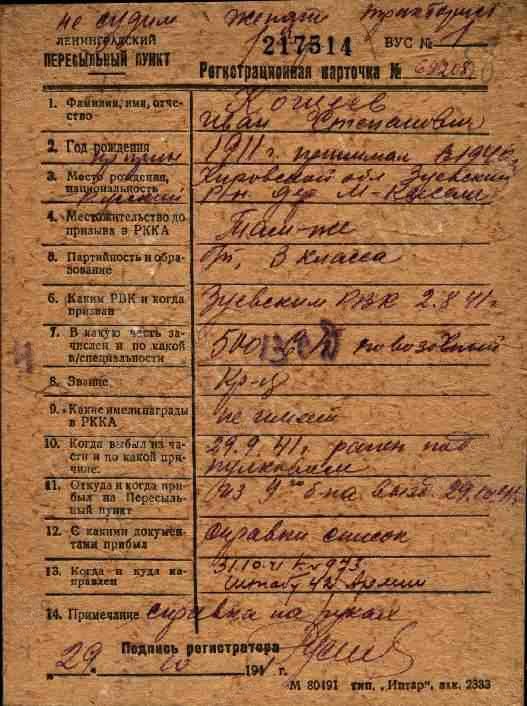 не судим женат тракторист
ЛЕНИНГРАДСКИЙ
ПЕРЕСЫЛЬНЫЙ ПУНКТ
217514 ВУС №
Регистрационная карточка №
1. Фамилия, имя, отчество
Иван Степанович
2. Год рождения
1911 г.
3. Место рождения, национальность
русский
Кировской обл Зуевский
р-н дер
4. Местожительство до призыва в РККА
Там-же
5. Партийность и образование
3 класса
6. Каким РВК и когда призван
Зуевским РВК 2.8 41 г
7. В какую часть зачислен и по какой в/специальности
500 повозочный
8. Звание
Кр-ц
9. Какие имели награды в РККА
не имеет
10. Когда выбыл из части и по какой причине
29.9.41 г. ранен под
Пулковом
11. Откуда и когда прибыл на Пересыльный пункт
из б-на выезд. 29.10.41 г.
12. С какими документами прибыл
справки список
13. Когда и куда направлен
31.10.41 к № 973
штабу 42 Армии
14. Примечание справка на руках
Подпись регистратора
„29“ 10 1941 г.
М 80491 тип. „Интар“, зак. 2333